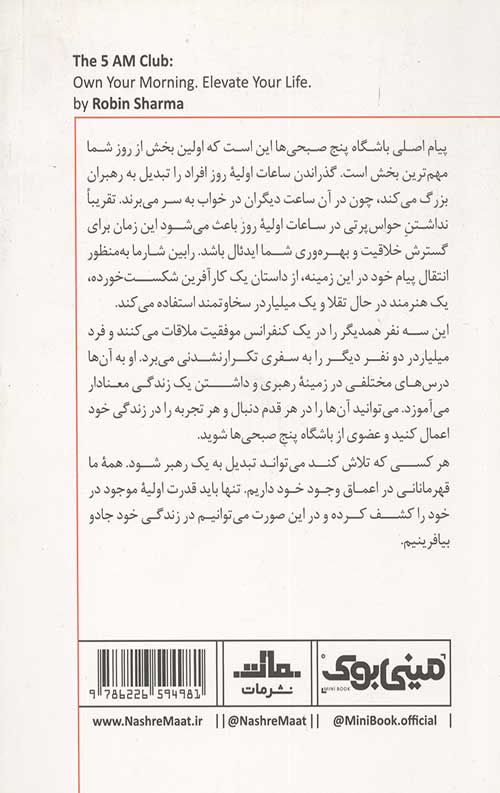 The 5 AM Club:
Own Your Morning. Elevate Your Life.
by Robin Sharma
پیام اصلی باشگاه پنج صبحی‌ها این است که اولین بخش از روز شما
مهم‌ترین بخش است. گذراندن ساعات اولیهٔ روز افراد را تبدیل به رهبران
بزرگ می‌کند، چون در آن ساعت دیگران در خواب به سر می‌برند. تقریباً
نداشتنِ حواس‌پرتی در ساعات اولیهٔ روز باعث می‌شود این زمان برای
گسترش خلاقیت و بهره‌وری شما ایدئال باشد. رابین شارما به‌منظور
انتقال پیام خود در این زمینه، از داستان یک کارآفرین شکست‌خورده،
یک هنرمند در حال تقلا و یک میلیاردر سخاوتمند استفاده می‌کند.
این سه نفر همدیگر را در یک کنفرانس موفقیت ملاقات می‌کنند و فرد
میلیاردر دو نفر دیگر را به سفری تکرارنشدنی می‌برد. او به آن‌ها
درس‌های مختلفی در زمینهٔ رهبری و داشتن یک زندگی معنادار
می‌آموزد. می‌توانید آن‌ها را در هر قدم دنبال و هر تجربه را در زندگی خود
اعمال کنید و عضوی از باشگاه پنج صبحی‌ها شوید.
هر کسی که تلاش کند می‌تواند تبدیل به یک رهبر شود. همهٔ ما
قهرمانانی در اعماق وجود خود داریم. تنها باید قدرت اولیهٔ موجود در
خود را کشف کرده و در این صورت می‌توانیم در زندگی خود جادو
بیافرینیم.
مینی بوک
MINI BOOK
مات
نشر مات
9 786226 594981
www.NashreMaat.ir || @NashreMaat || @MiniBook.official |